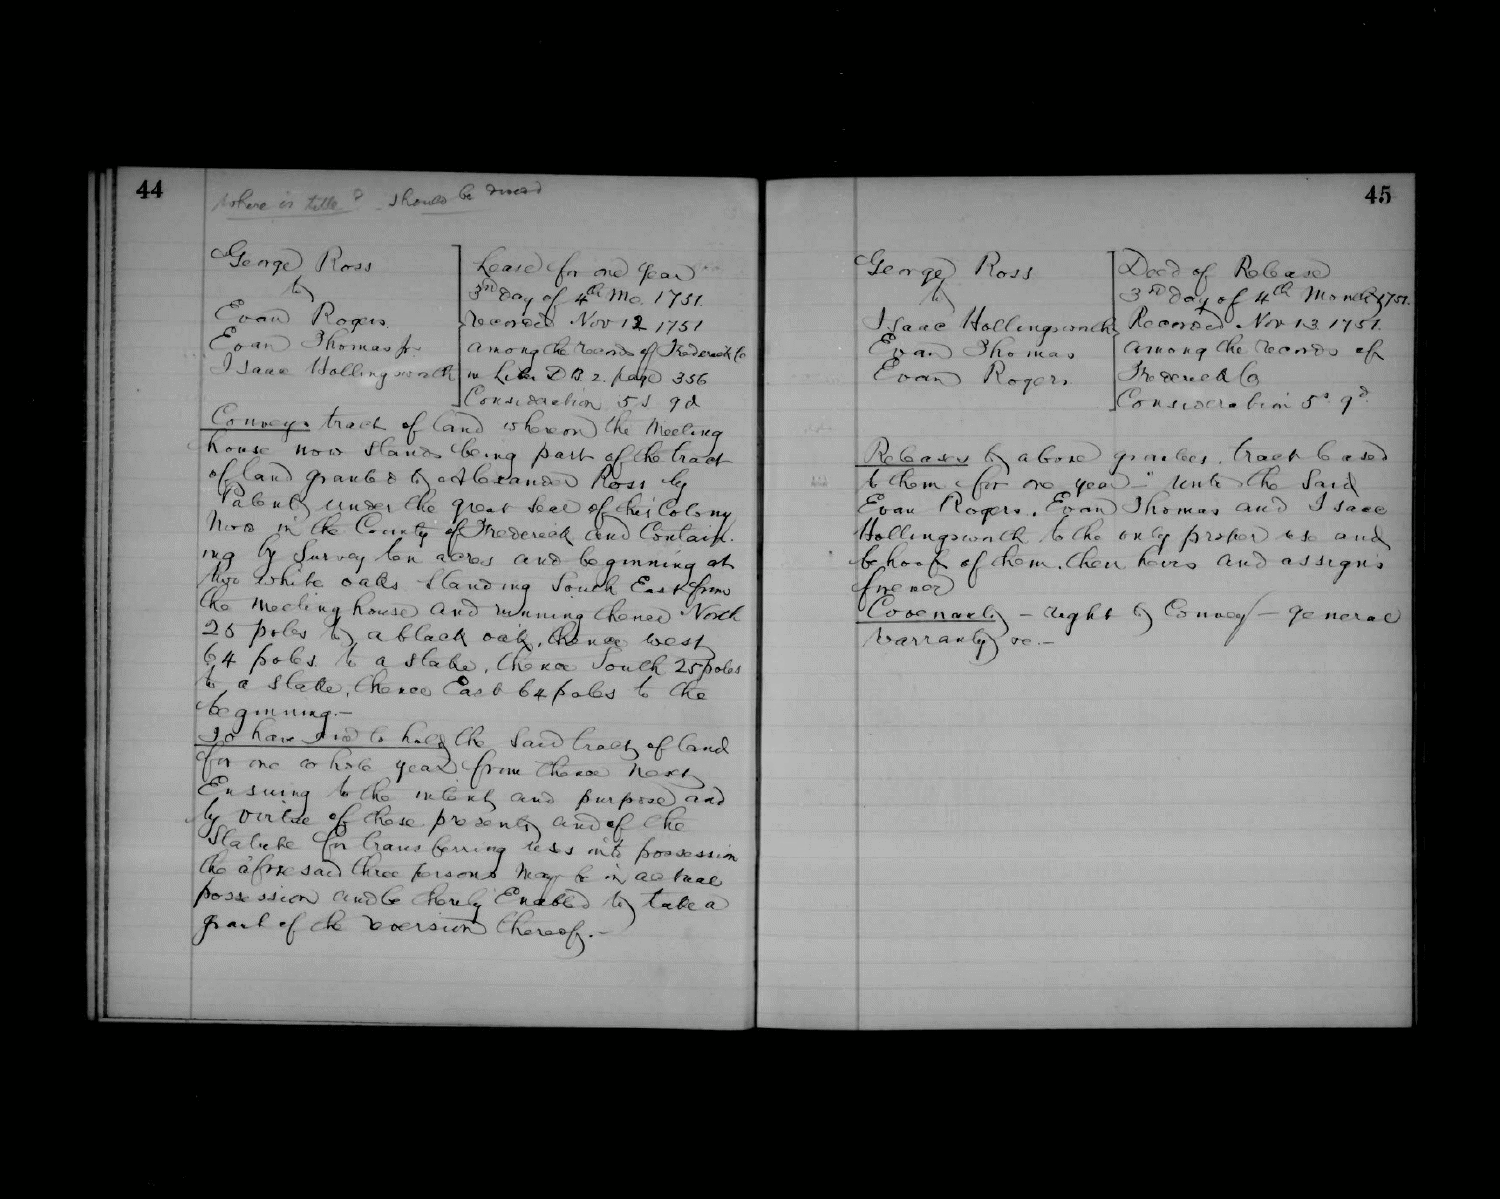 44
where is title? should be
George Ross
to
Evan Rogers
Evan Thomas Jr
Isaac Hollingsworth
Lease for one year
3rd day of 4th Mo. 1751.
recorded Nov 12 1751
among the records of Frederick Co
in Liber D B 2. page 356
Consideration 5 s 9 d
Conveys tract of land whereon the Meeting
house now stands being part of the tract
of land granted to Alexander Ross by
Patent under the great seal of his Colony
Now in the County of Frederick and Contain-
ing by Survey ten acres and beginning at
two white oaks standing South East from
the Meeting house and running thence North
25 poles to a black oak, thence West
64 poles to a stake, thence South 25 poles
to a stake, thence East 64 poles to the
beginning.—
To have and to hold the said tract of land
for one whole year from thence next
Ensuing to the intent and purpose and
by virtue of these presents and of the
Statute for transferring uses into possession
the aforesaid three persons may be in actual
possession and be thereby Enabled to take a
grant of the reversion thereof.—
45
George Ross
to
Isaac Hollingsworth
Evan Thomas
Evan Rogers
Deed of Release
3rd day of 4th Month 1751.
Recorded Nov 13 1751.
among the records of
Frederick Co
Consideration 5s 9d
Releases to above grantees, tract leased
to them for one year — "unto the said
Evan Rogers, Evan Thomas and Isaac
Hollingsworth to the only proper use and
behoof of them, their heirs and assigns
forever
Covenants — right to Convey — general
warranty &c. —